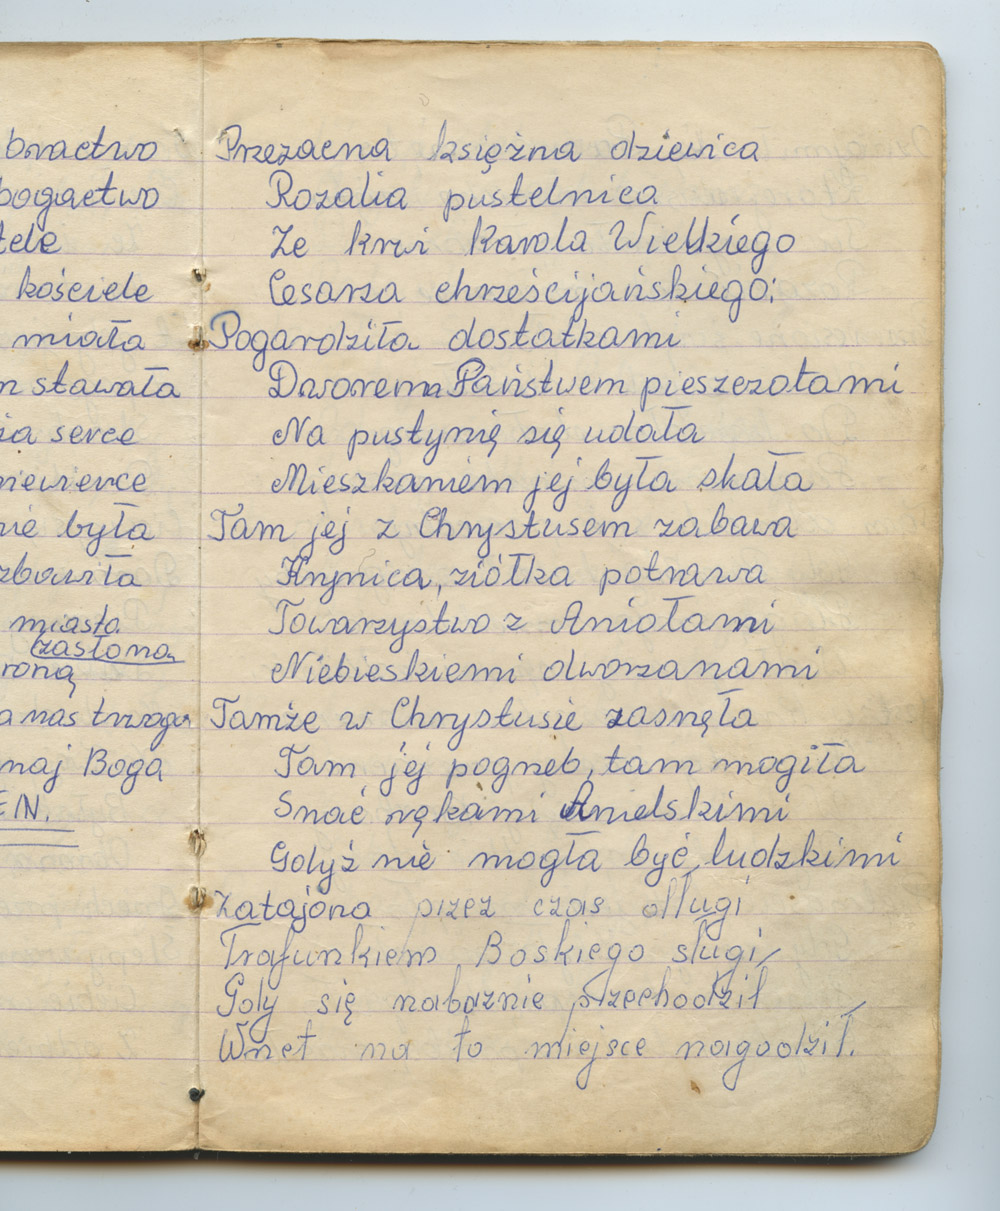 bractwo
bogactwo
tele
kościele
miała
stawała
serce
niewierce
nie była
zbawiła
miasto
zasłoną
roną
nas trwoga
naj Boga
Przezacna księżna dziewica
Rozalia pustelnica
Ze krwi Karola Wielkiego
Cesarza chrześcijańskiego;
Pogardziła dostatkami
Dworema Państwem pieszczotami
Na pustynię się udała
Mieszkaniem jej była skała
Tam jej z Chrystusem zabawa
Krynica, ziółka potrawa
Towarzystwo z Aniołami
Niebieskiemi dworzanami
Tamże w Chrystusie zasnęła
Tam jej pogrzeb, tam mogiła
Snać rękami Anielskimi
Gdyż nie mogła być ludzkimi
Zatajona przez czas długi
Trafunkiem Boskiego sługi,
Gdy się nabożnie przechodził
Wnet na to miejsce nagodził.